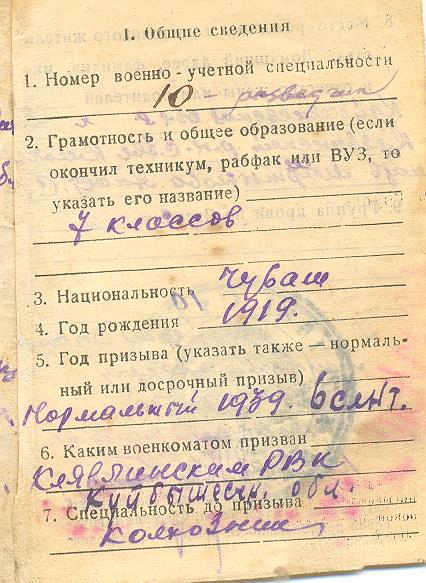 I. Общие сведения
1. Номер военно-учетной специальности
10 - разведчик
2. Грамотность и общее образование (если
окончил техникум, рабфак или ВУЗ, то
указать его название)
7 классов
3. Национальность чуваш
4. Год рождения 1919.
5. Год призыва (указать также — нормаль-
ный или досрочный призыв)
Нормальный 1939.
6. Каким военкоматом призван
Клявлинским РВК
Куйбышевск. обл
7. Специальность до призыва
Колхозник